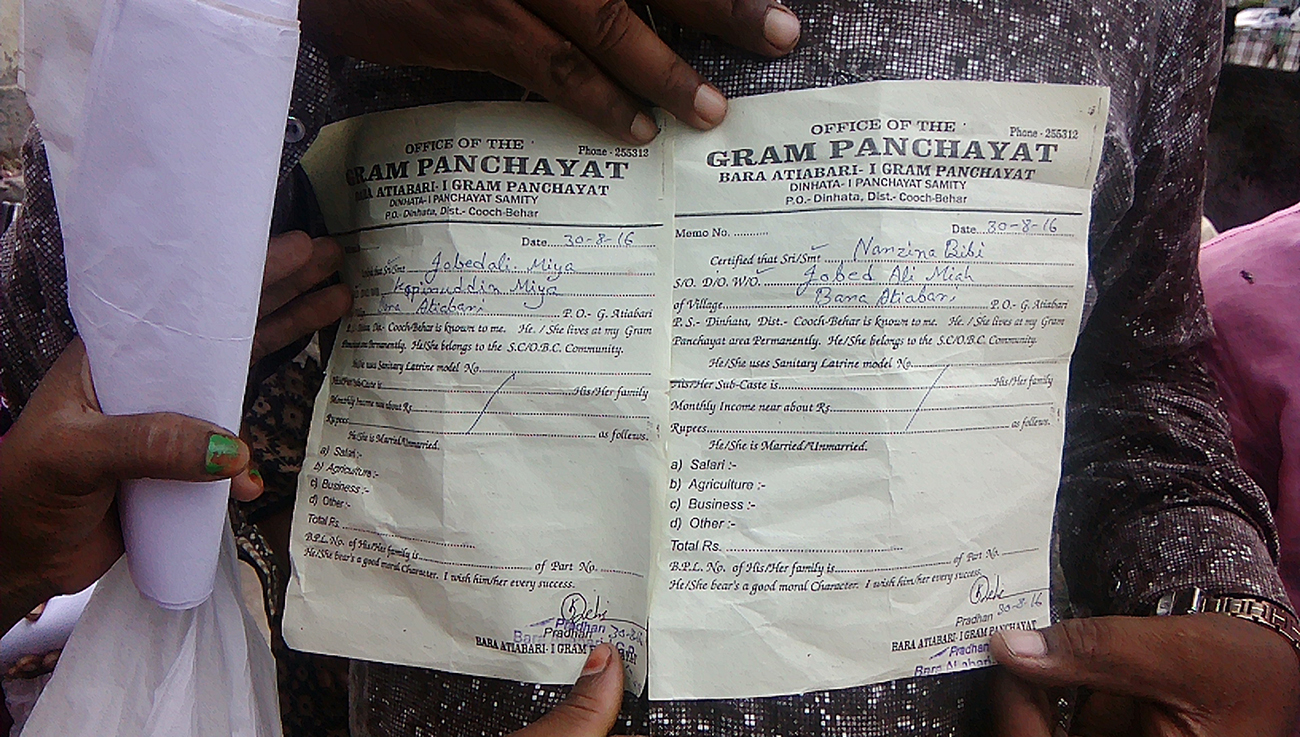 OFFICE OF THE
Phone - 255312
GRAM PANCHAYAT
BARA ATIABARI- I GRAM PANCHAYAT
DINHATA- I PANCHAYAT SAMITY
P.O.- Dinhata, Dist.- Cooch-Behar
Date 30-8-16
that Sri/Smt Jobedali Miya
Miya
Bara Atiabari P.O.- G. Atiabari
Dist.- Cooch-Behar is known to me. He. / She lives at my Gram
Permanently. He/She belongs to the S.C/O.B.C. Community.
He/She uses Sanitary Latrine model No.
His/Her Sub-Caste is His/Her family
Monthly Income near about Rs
Rupees as follews.
He/She is Married/Unmarried.
a) Salari :-
b) Agriculture:-
c) Business :-
d) Other:-
Total Rs.
B.P.L. No. of His/Her family is of Part No.
He/She bear's a good moral Character. I wish him/her every success.
Pradhan
BARA ATIABARI- I GRAM
Pradhan
OFFICE OF THE
Phone - 255312
GRAM PANCHAYAT
BARA ATIABARI- I GRAM PANCHAYAT
DINHATA- I PANCHAYAT SAMITY
P.O.- Dinhata, Dist.- Cooch-Behar
Memo No. Date 30-8-16
Certified that Sri/Smt Nanzina Bibi
S/O. D/O. W/O. Jobed Ali Miah
of Village Bara Atiabari P.O.- G. Atiabari
P. S.- Dinhata, Dist.- Cooch-Behar is known to me. He. / She lives at my Gram
Panchayat area Permanently. He/She belongs to the S.C/O.B.C. Community.
He/She uses Sanitary Latrine model No.
His/Her Sub-Caste is His/Her family
Monthly Income near about Rs.
Rupees as follews.
He/She is Married/Unmarried.
a) Salari :-
b) Agriculture :-
c) Business :-
d) Other :-
Total Rs.
B.P.L. No. of His/Her family is of Part No.
He/She bear's a good moral Character. I wish him/her every success
30-8-16
Pradhan
BARA ATIABARI- I GRAM PANCHAYAT
Pradhan